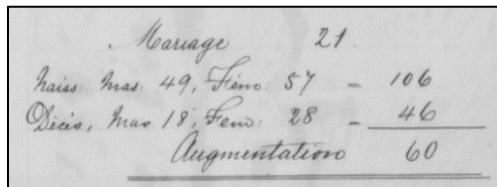 Mariage 21.
Naiss Mas. 49, Fém: 57 = 106
Décès, Mas 18, Fem: 28 = 46
Augmentation 60